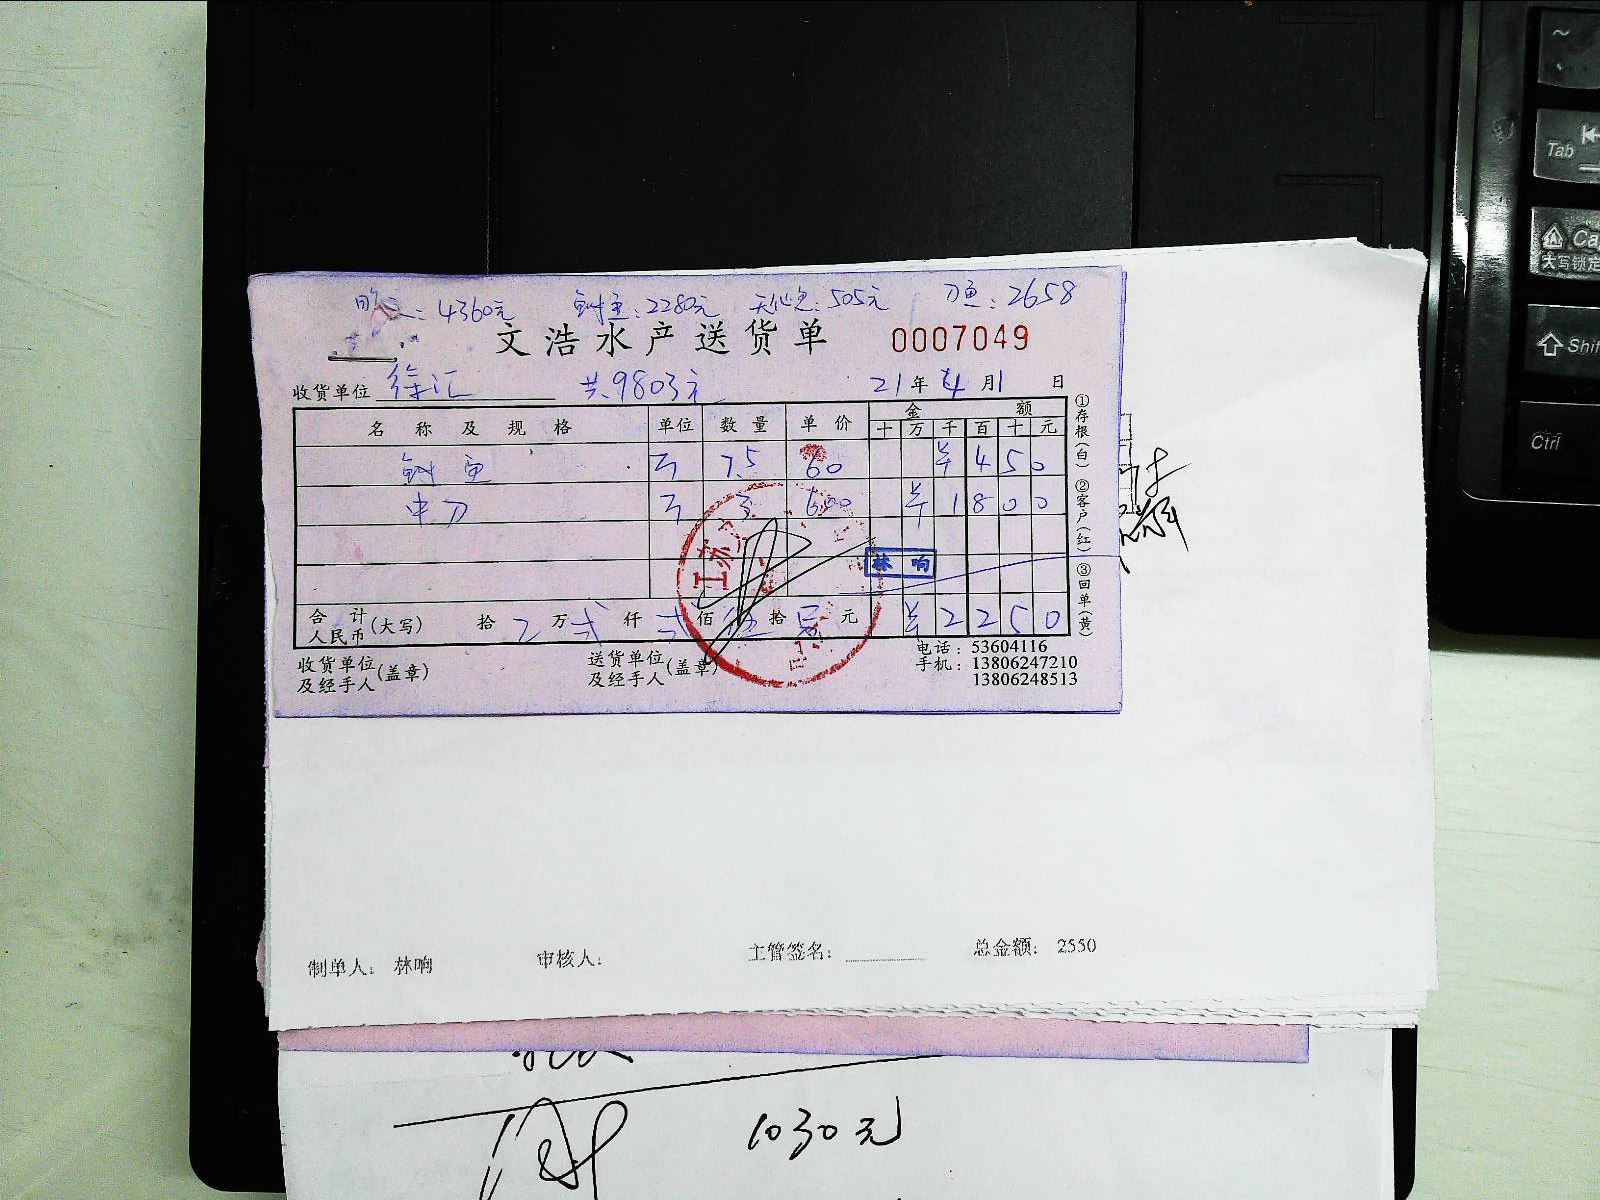 4360元 鲥鱼:2280元 :505元 刀鱼:2658
文浩水产送货单 0007049
收货单位 徐汇 共9803元 21年4月1日
名称及规格 单位 数量 单价 金额
十 万 千 百 十 元
鲥鱼 斤 7.5 60 ¥ 4 5 0
中刀 斤 3 600 ¥ 1 8 0 0
林响
合计人民币(大写) 拾 万 贰 仟 贰 佰 伍 拾 元 ¥ 2 2 5 0
收货单位及经手人(盖章) 送货单位及经手人(盖章) 电话:53604116
手机:13806247210
13806248513
①存根(白) ②客户(红) ③回单(黄)
江苏
制单人: 林响 审核人: 主管签名: 总金额: 2550
1030元
~
Tab
Ca
大写锁定
Shif
Ctrl